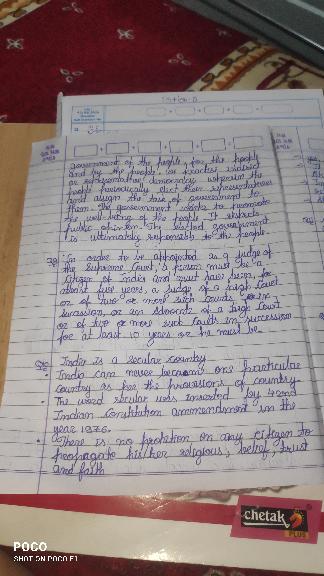 Section-B
government of the people, for the people
and by the people. In practice indirect
or representative democracy wherein the
people periodically elect their representatives
and assign the task of government to
them. The government works to promote
the well-being of the people. It respects
public opinion. The elected government
is ultimately responsible to the people.
In order to be appointed as a judge of
the Supreme Court, a person must be a
citizen of India and must have been, for
about five years, a judge of a High Court
or of two or more such Courts, in
succession, or an advocate of a High Court
or of two or more such Courts in succession
for at least 10 years or he must be
India is a secular country
• India can never become one particular
country as per the provisions of country
• The word secular was inserted by 42nd
Indian Constitution ammendment in the
year 1976.
• There is no probition on any citizen to
propagate his/her religious, belief, trust
and faith
chetak
PLUS
POCO
SHOT ON POCO F1